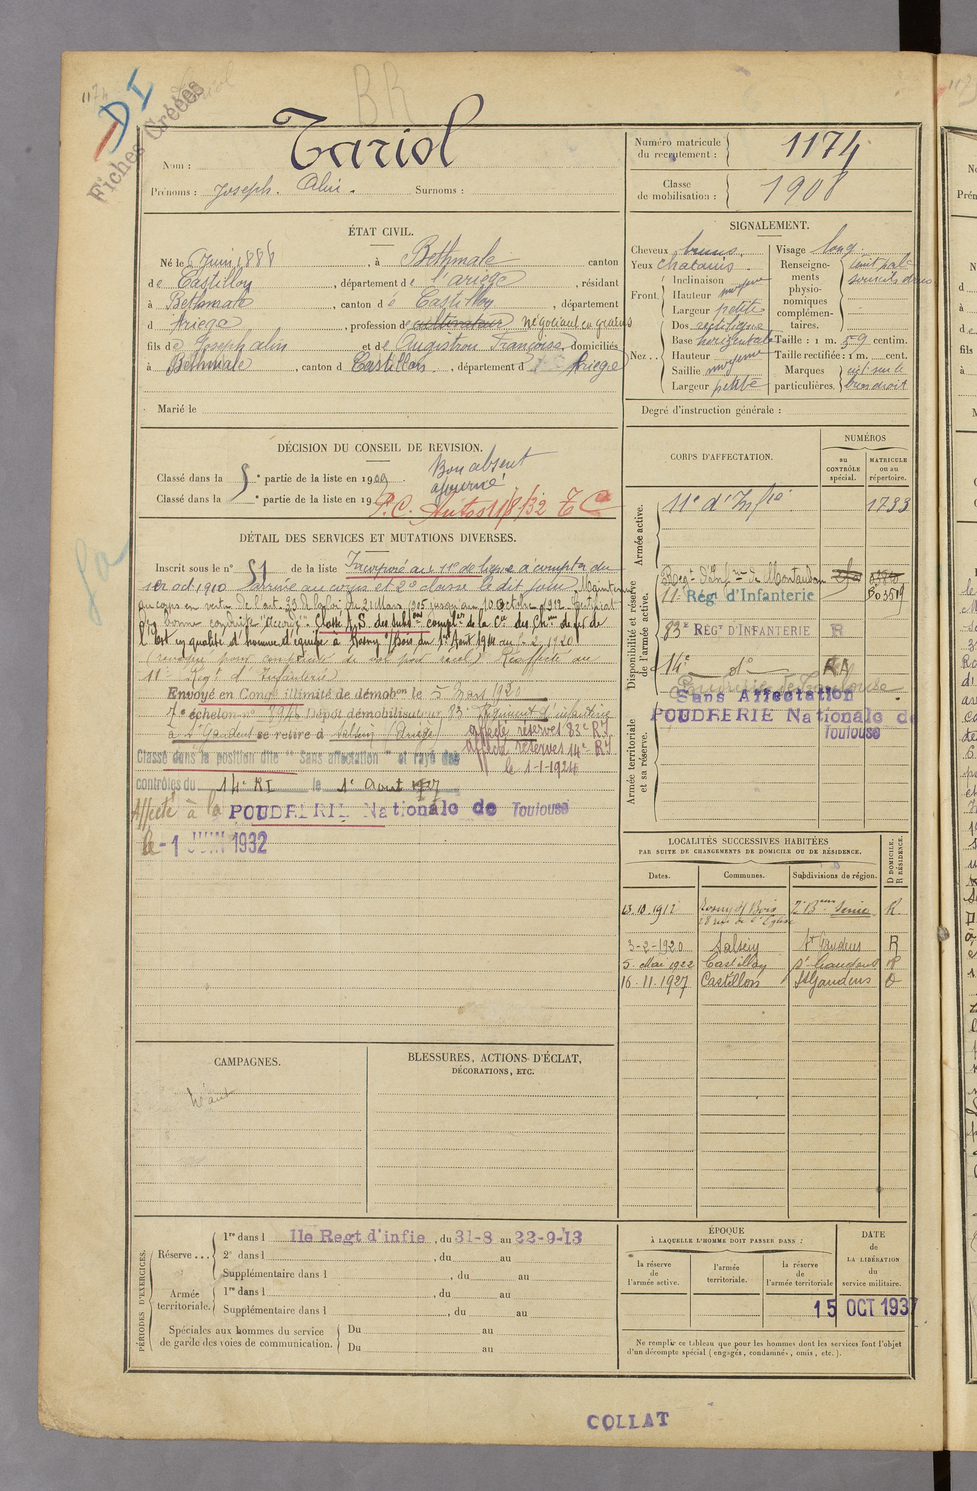 1174
DI
Fiches Créées
BR
Nom : Tariol
Prénoms : Joseph. Alin. Surnoms :
Numéro matricule du recrutement : 1174
Classe de mobilisation : 1908
ÉTAT CIVIL.
Né le 6 Juin 1888, à Bethmale canton
de Castillon, département de l'ariege, résidant
à Bethmale, canton de Castillon, département
d Ariege, profession de cultivateur négociant en gratins
fils de Joseph alin et de Augistrou Françoise, domiciliés
à Bethmale, canton d Castillon, département d Ariege
Marié le
SIGNALEMENT.
Cheveux bruns
Yeux chatains
Front. Inclinaison
Hauteur moyenne
Largeur petite
Nez... Dos rectiligne
Base horizontale
Hauteur moyenne
Saillie moyenne
Largeur petite
Visage long
Renseignements physionomiques complémentaires.
Taille : 1 m. 59 centim.
Taille rectifiée : 1 m. cent.
Marques particulières. bras droit
Degré d'instruction générale :
DÉCISION DU CONSEIL DE REVISION.
Classé dans la 5e partie de la liste en 1909 Bon absent
Classé dans la e partie de la liste en 19 ajourné
DÉTAIL DES SERVICES ET MUTATIONS DIVERSES.
Inscrit sous le n° 51 de la liste Incorporé au 11e de ligne à compter du
1er oct 1910 arrivé au corps et 2e classe le dit jour. Maintenu
au corps en vertu de l'art. 33 de la loi du 21 Mars 1905 jusqu'au 10 Octobre 1912 Certificat
de bonne conduite "Accordé". Classé A.S. des subdons complres de la Cie des Chins de fer de
l'Est en qualité d'homme d'équipe à Rosny s/Bois du 1er Août 1914 au 2 1920
Réaffecté au
11e Régt d'Infanterie
Envoyé en Congé illimité de démobon le 5 Mars 1920
échelon n° 8946 Dépôt démobilisateur 83e Régiment d'infanterie
à St Gaudens se retire à (Ariège) affecté réserves 83e RI
affecté réserves 14e RI
le 1-1-1924
Classé dans la position dite "Sans affectation" et rayé des
contrôles du 14e RI le 1er Aout 1927
Affecté à la POUDRERIE Nationale de Toulouse
le -1 JUIN 1932
CORPS D'AFFECTATION.
NUMÉROS
au CONTRÔLE spécial.
MATRICULE ou au répertoire.
Armée active.
11e d'Infie 1733
Disponibilité et réserve de l'armée active.
11e Rég. d'Infanterie
83e RÉGt D'INFANTERIE R
14e do
Sans Affectation
POUDRERIE Nationale de Toulouse
Armée territoriale et sa réserve.
LOCALITÉS SUCCESSIVES HABITÉES
PAR SUITE DE CHANGEMENTS DE DOMICILE OU DE RÉSIDENCE.
Dates. Communes. Subdivisions de région. D DOMICILE. R RÉSIDENCE.
13.10.1912 Rosny s/ Bois 2e Bau Seine R.
28 rue de l'Eglise
3-2-1920 Salsein St Gaudens R
5. Mai 1922 Castillon St Gaudens R
16.11.1927 Castillon St Gaudens D
CAMPAGNES.
Néant
BLESSURES, ACTIONS D'ÉCLAT,
DÉCORATIONS, ETC.
PÉRIODES D'EXERCICES.
Réserve... 1re dans l 11e Regt d'infie, du 31-8 au 22-9-13
2e dans l , du au
Supplémentaire dans l , du au
Armée territoriale. 1re dans l , du au
Supplémentaire dans l , du au
Spéciales aux hommes du service de garde des voies de communication. Du au
Du au
ÉPOQUE
À LAQUELLE L'HOMME DOIT PASSER DANS :
la réserve de l'armée active.
l'armée territoriale.
la réserve de l'armée territoriale
DATE de LA LIBÉRATION du service militaire.
15 OCT 1937
Ne remplir ce tableau que pour les hommes dont les services font l'objet
d'un décompte spécial (engagés, condamnés, omis, etc.).
COLLAT